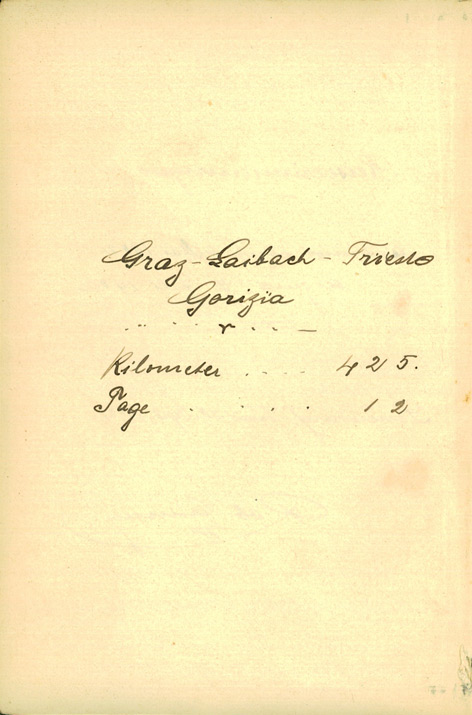 Graz - Laibach - Trieste
Gorizia
Kilometer .... 425.
Tage ..... 12